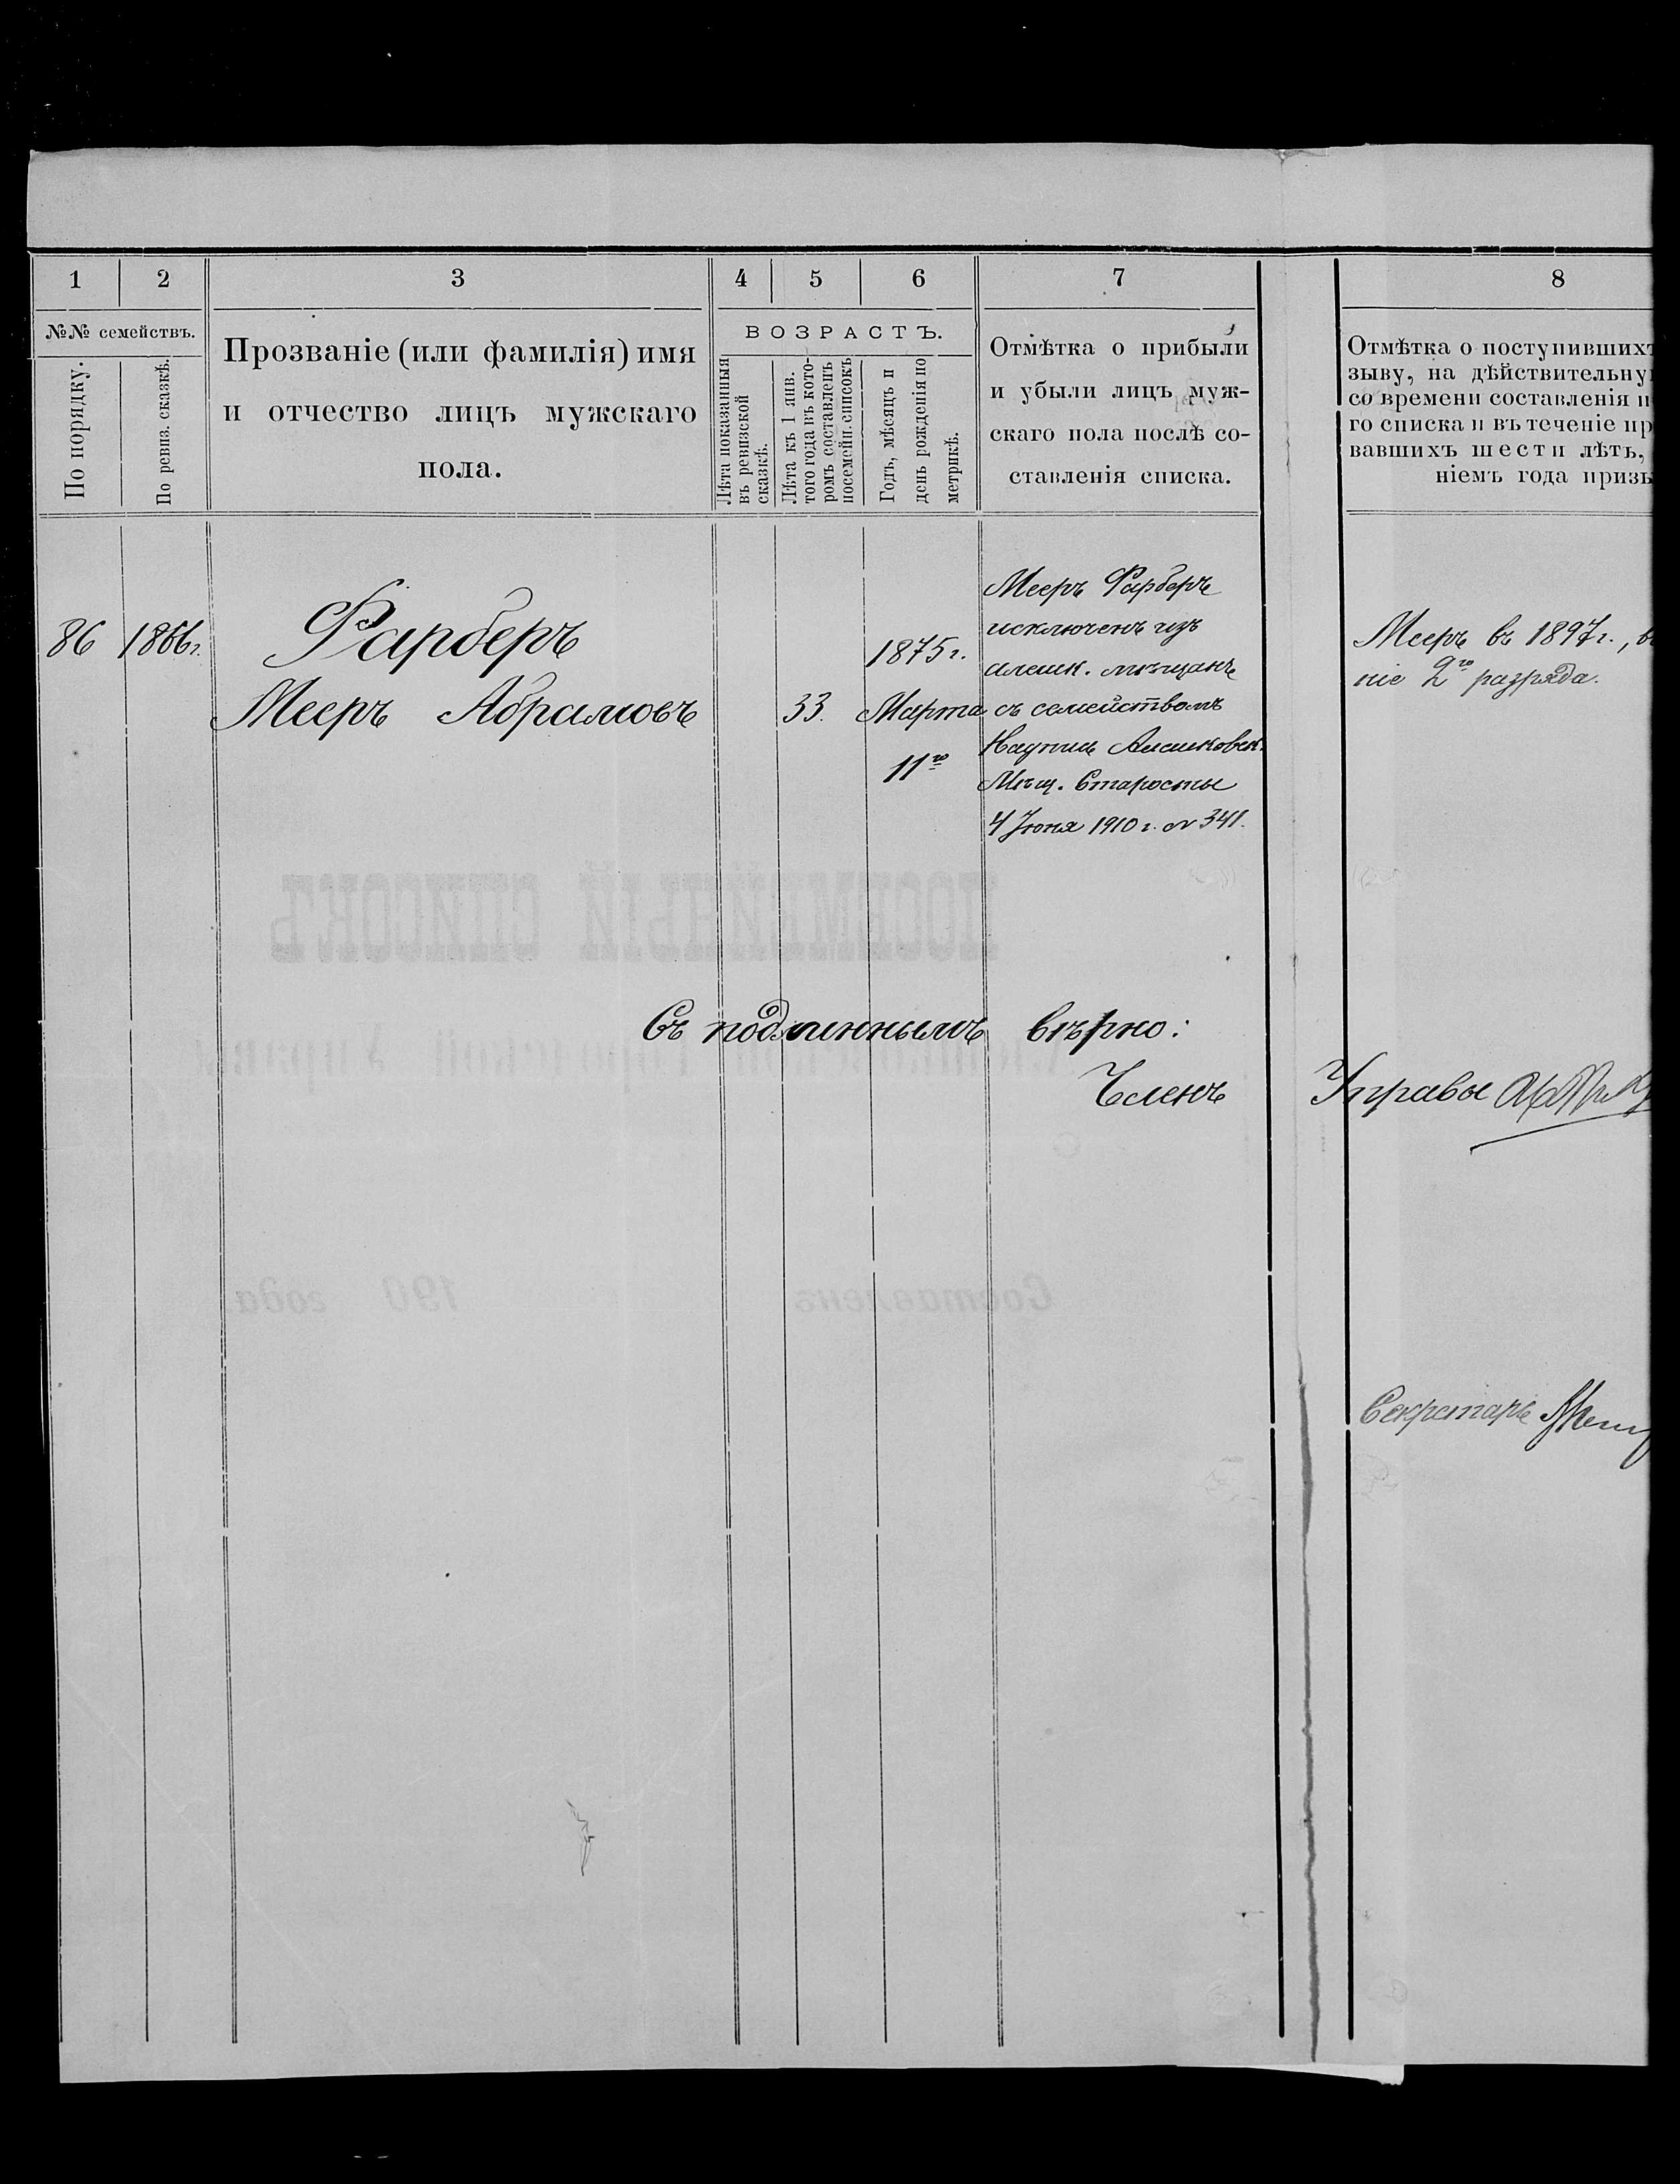 1 2 3 4 5 6 7 8
№№ семействъ.
По порядку.
По ревиз. сказкѣ.
Прозваніе (или фамилія) имя
и отчество лицъ мужскаго
пола.
ВОЗРАСТЪ.
Лѣта показанныя
въ ревизской
сказкѣ.
Лѣта къ 1 янв.
того года въ кото-
ромъ составленъ
посемейн. списокъ
Годъ, мѣсяцъ и
день рожденія по
метрикѣ.
Отмѣтка о прибыли
и убыли лицъ муж-
скаго пола послѣ со-
ставленія списка.
Отмѣтка о поступившихъ
зыву, на дѣйствительну
со времени составленія п
го списка и въ теченіе пр
вавшихъ шести лѣтъ,
ніемъ года призы
86 1866г.
Фарберъ
Мееръ Абрамовъ
33.
1875г.
Марта
11го
Мееръ Фарберъ
исключенъ изъ
алешк. мѣщанъ
съ семействомъ
Алешковск.
Мѣщ. Старосты
4 Іюня 1910 г. № 341.
Мееръ въ 1897г.,
ніе 2го разряда.
Съ подлиннымъ вѣрно:
Членъ Управы
Секретарь
ПОСЕМЕЙНЫЙ СПИСОКЪ
Городской Управы
Составленъ 190 года